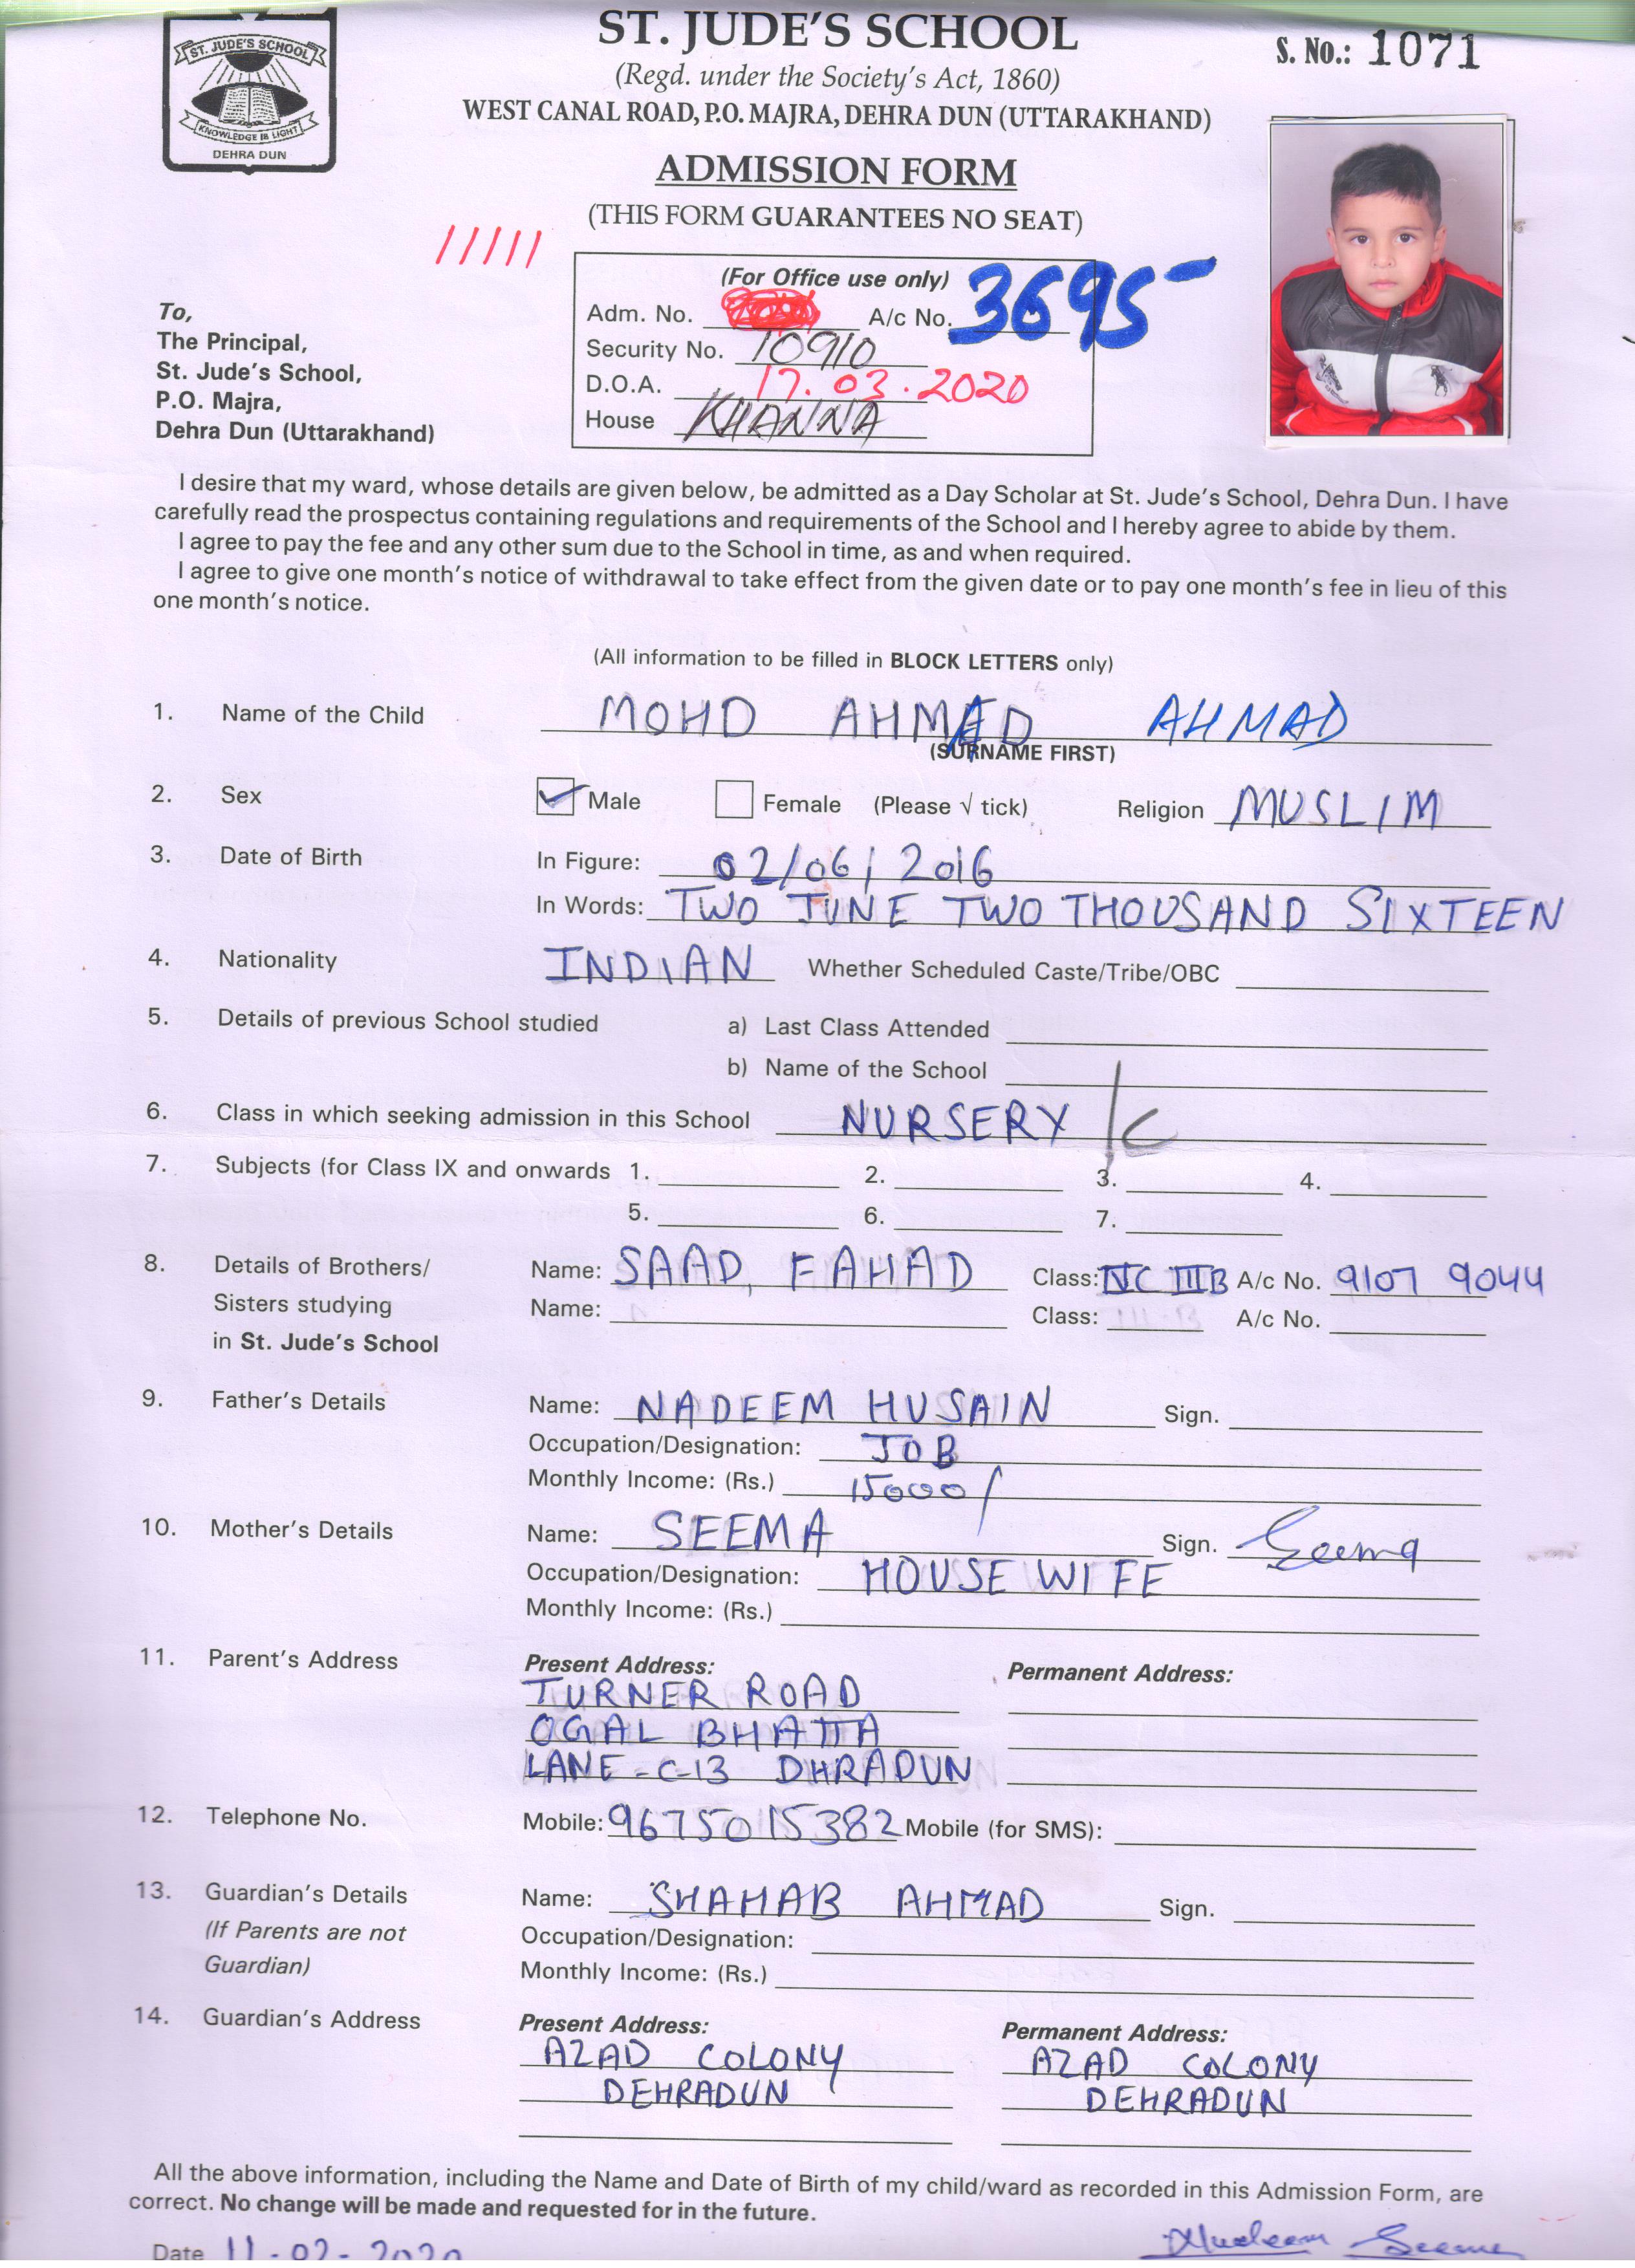 ST. JUDE'S SCHOOL
KNOWLEDGE IS LIGHT
DEHRA DUN
ST. JUDE'S SCHOOL
(Regd. under the Society's Act, 1860)
WEST CANAL ROAD, P.O. MAJRA, DEHRA DUN (UTTARAKHAND)
S. No.: 1071
ADMISSION FORM
(THIS FORM GUARANTEES NO SEAT)
(For Office use only)
Adm. No. A/c No. 3695
Security No. 10910
D.O.A. 17.03.2020
House KHANNA
To,
The Principal,
St. Jude's School,
P.O. Majra,
Dehra Dun (Uttarakhand)
I desire that my ward, whose details are given below, be admitted as a Day Scholar at St. Jude's School, Dehra Dun. I have
carefully read the prospectus containing regulations and requirements of the School and I hereby agree to abide by them.
I agree to pay the fee and any other sum due to the School in time, as and when required.
I agree to give one month's notice of withdrawal to take effect from the given date or to pay one month's fee in lieu of this
one month's notice.
(All information to be filled in BLOCK LETTERS only)
1. Name of the Child MOHD AHMAD AHMAD
(SURNAME FIRST)
2. Sex Male Female (Please √ tick) Religion MUSLIM
3. Date of Birth In Figure: 02/06/2016
In Words: TWO JUNE TWO THOUSAND SIXTEEN
4. Nationality INDIAN Whether Scheduled Caste/Tribe/OBC
5. Details of previous School studied a) Last Class Attended
b) Name of the School
6. Class in which seeking admission in this School NURSERY /C
7. Subjects (for Class IX and onwards 1. 2. 3. 4.
5. 6. 7.
8. Details of Brothers/ Name: SAAD, FAHAD Class: IVC IIIB A/c No. 9107, 9044
Sisters studying Name: Class: A/c No.
in St. Jude's School
9. Father's Details Name: NADEEM HUSAIN Sign.
Occupation/Designation: JOB
Monthly Income: (Rs.) 15000/
10. Mother's Details Name: SEEMA Sign. Seema
Occupation/Designation: HOUSE WIFE
Monthly Income: (Rs.)
11. Parent's Address Present Address: Permanent Address:
TURNER ROAD
OGAL BHATTA
LANE-C-13 DHRADUN
12. Telephone No. Mobile: 9675015382 Mobile (for SMS):
13. Guardian's Details Name: SHAHAB AHMAD Sign.
(If Parents are not Occupation/Designation:
Guardian) Monthly Income: (Rs.)
14. Guardian's Address Present Address: Permanent Address:
AZAD COLONY AZAD COLONY
DEHRADUN DEHRADUN
All the above information, including the Name and Date of Birth of my child/ward as recorded in this Admission Form, are
correct. No change will be made and requested for in the future.
Date 11-02-2020 Nadeem Seema